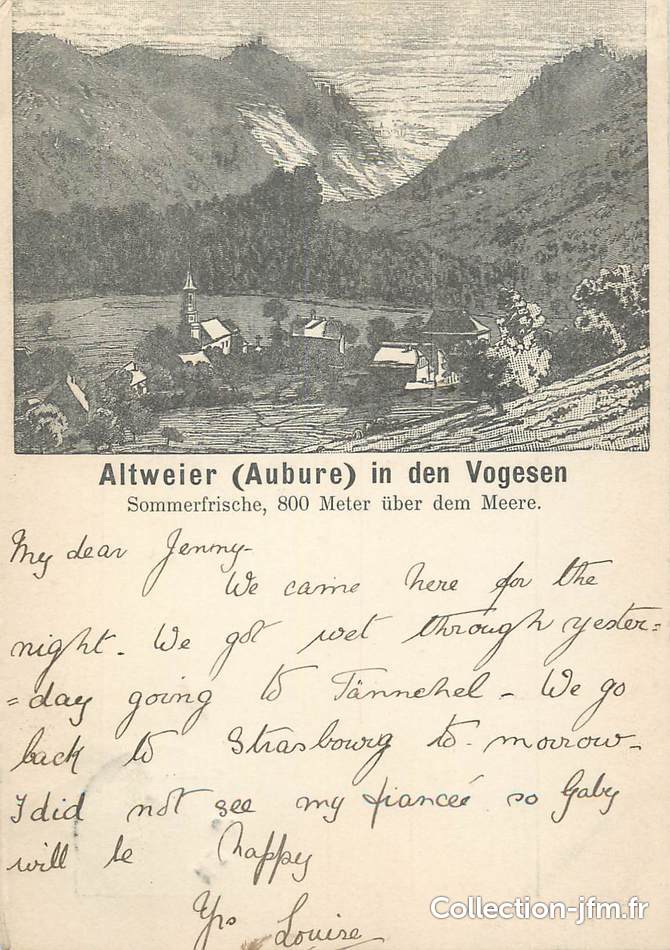 Altweier (Aubure) in den Vogesen
Sommerfrische, 800 Meter über dem Meere.
My dear Jenny-
We came here for the
night. We got wet through yester-
=day going to Tännchel - We go
back to Strasbourg to-morrow-
I did not see my fiancée so Gaby
will be happy
Yrs Louise
Collection-jfm.fr